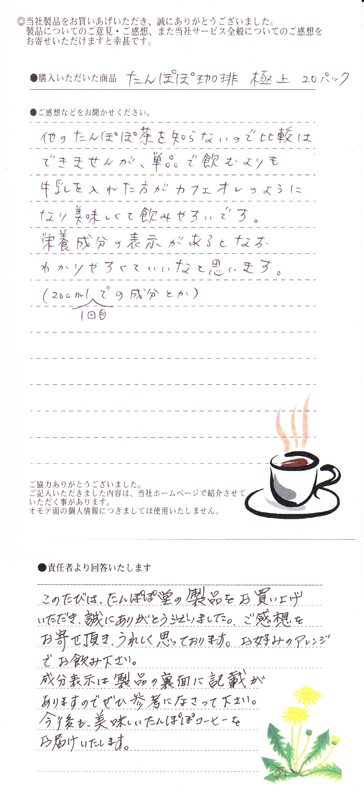 ◎当社製品をお買いあげいただき、誠にありがとうございました。
製品についてのご意見・ご感想、また当社サービス全般についてのご感想を
お寄せいただけますと幸甚です。
●購入いただいた商品 たんぽぽ珈琲 極上 20パック
●ご感想などをお聞かせください。
他のたんぽぽ茶を知らないので比較は
できませんが、単品で飲むよりも
牛乳を入れた方がカフェオレのように
なり美味しくて飲みやすいです。
栄養成分の表示があるとなお
わかりやすくていいなと思います。
(200mlでの成分とか)
1回分
ご協力ありがとうございました。
ご記入いただきました内容は、当社ホームページで紹介させて
いただく事があります。
オモテ面の個人情報につきましては使用いたしません。
●責任者より回答いたします
このたびは、たんぽぽ堂の製品をお買い上げ
いただき、誠にありがとうございました。ご感想を
お寄せ頂き、うれしく思っております。お好みのアレンジ
でお飲み下さい。
成分表示は製品の裏面に記載が
ありますのでぜひ参考になさって下さい。
今後も、美味しいたんぽぽコーヒーを
お届けいたします。